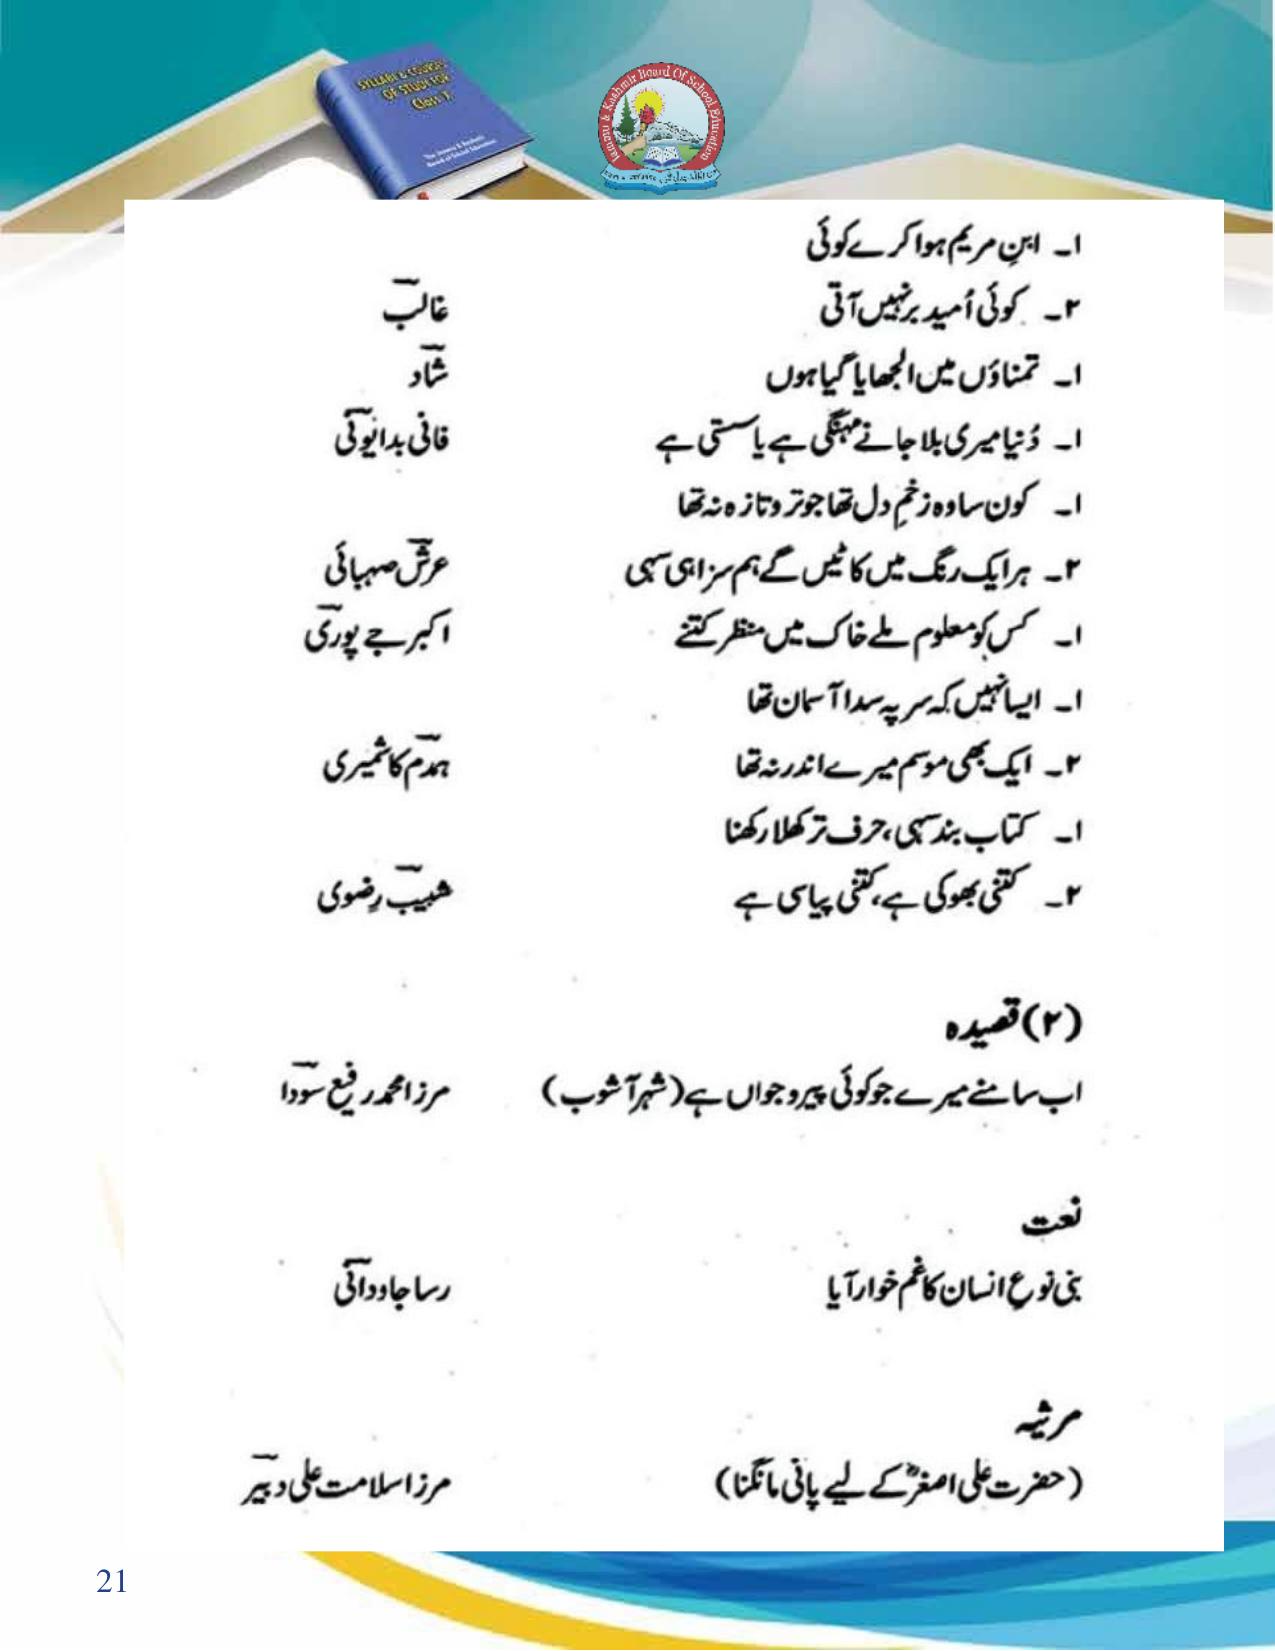 SYLLABI & COURSES
OF STUDY FOR
Class
Jammu & Kashmir Board Of School Education
۱۔ ابنِ مریم ہوا کرے کوئی
۲۔ کوئی اُمید بر نہیں آتی غالب
۱۔ تمناؤں میں الجھایا گیا ہوں شاد
۱۔ دُنیا میری بلا جانے مہنگی ہے یا سستی ہے فانی بدایونی
۱۔ کون سا وہ زخمِ دل تھا جو تر و تازہ نہ تھا
۲۔ ہر ایک رنگ میں کاٹیں گے ہم سزا ہی سہی عرش صہبائی
۱۔ کس کو معلوم ملے خاک میں منظر کتنے اکبر جے پوری
۱۔ ایسا نہیں کہ سر پہ سدا آسمان تھا
۲۔ ایک بھی موسم میرے اندر نہ تھا ہمدم کاشمیری
۱۔ کتاب بند سہی، حرف تر کھلا رکھنا
۲۔ کتنی بھوکی ہے، کتنی پیاسی ہے شبیب رِضوی
(۲) قصیدہ
اب سامنے میرے جو کوئی پیر و جواں ہے (شہر آشوب) مرزا محمد رفیع سودا
نعت
بنی نوعِ انسان کا غم خوار آیا رسا جاودانی
مرثیہ
(حضرت علی اصغرؓ کے لیے پانی مانگنا) مرزا سلامت علی دبیر
21